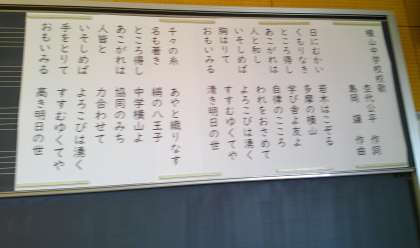 横山中学校校歌
杢代公平 作詞
島岡 譲 作曲
日にむかい 若木はこぞる
くもりなき 多摩の横山
ところ得し 学び舎よ友よ
あこがれは 自律のこころ
人と和し われをおさめて
いそしめば よろこびは湧く
胸はりて すすむゆくてや
おもいみる 清き明日の世
千々の糸 あやと織りなす
名も著き 絹の八王子
ところ得し 中学横山よ
あこがれは 協同のみち
人皆と 力合わせて
いそしめば よろこびは湧く
手をとりて すすむゆくてや
おもいみる 高き明日の世